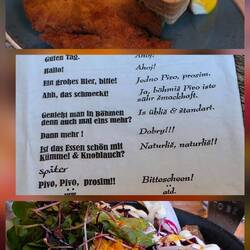 Guten Tag. Ahoj.
Hallo! Ahoj!
Ein großes Bier, bitte! Jedno Pivo, prosim.
Ahh, das schmeckt! Ja, böhmiš Pivo iste sahr šmackhoft.
Genießt man in Böhmen denn auch mal eins mehr? Is übliš & štandart.
Dann mehr ! Dobry!!!
Ist das Essen schön mit Kümmel & Knoblauch? Naturliš, naturliš!!
später
Pivo, Pivo, prosim!! Bittescheen!